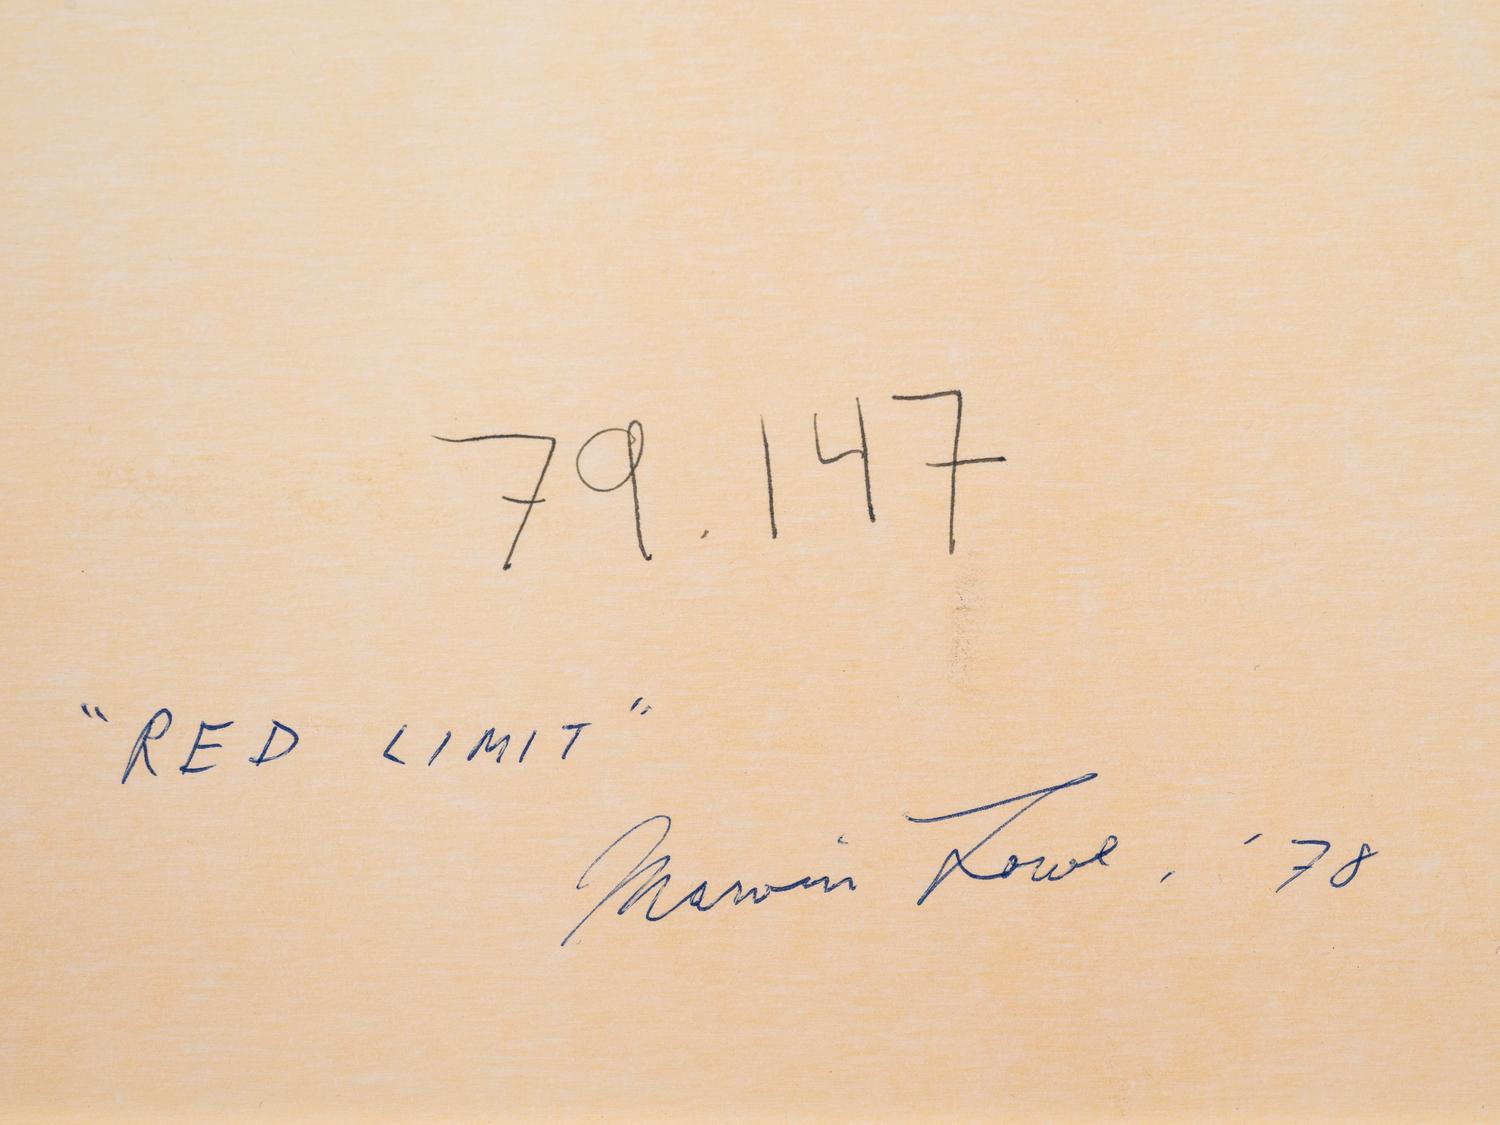 79.147
"RED LIMIT"
Marvin Lowe, '78